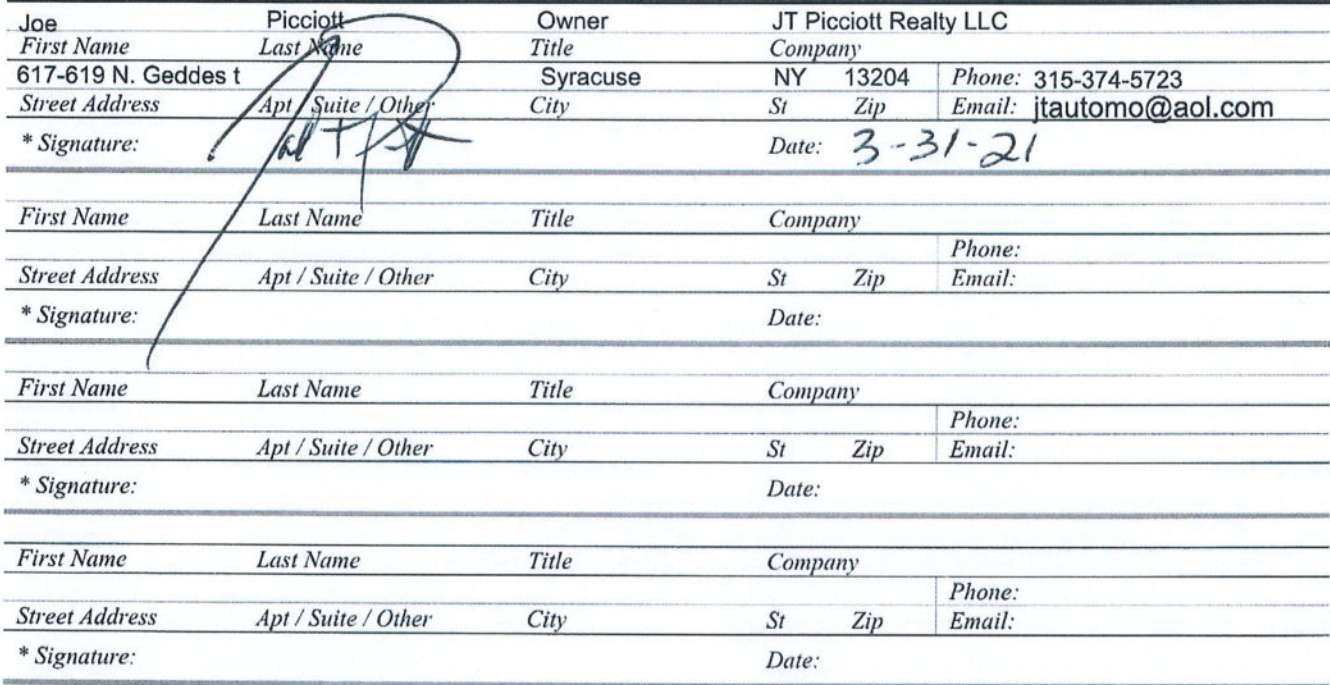 Joe Picciott Owner JT Picciott Realty LLC
First Name Last Name Title Company
617-619 N. Geddes t Syracuse NY 13204 Phone: 315-374-5723
Street Address Apt / Suite / Other City St Zip Email: jtautomo@aol.com
* Signature: Date: 3-31-21
First Name Last Name Title Company
Phone:
Street Address Apt / Suite / Other City St Zip Email:
* Signature: Date:
First Name Last Name Title Company
Phone:
Street Address Apt / Suite / Other City St Zip Email:
* Signature: Date:
First Name Last Name Title Company
Phone:
Street Address Apt / Suite / Other City St Zip Email:
* Signature: Date: